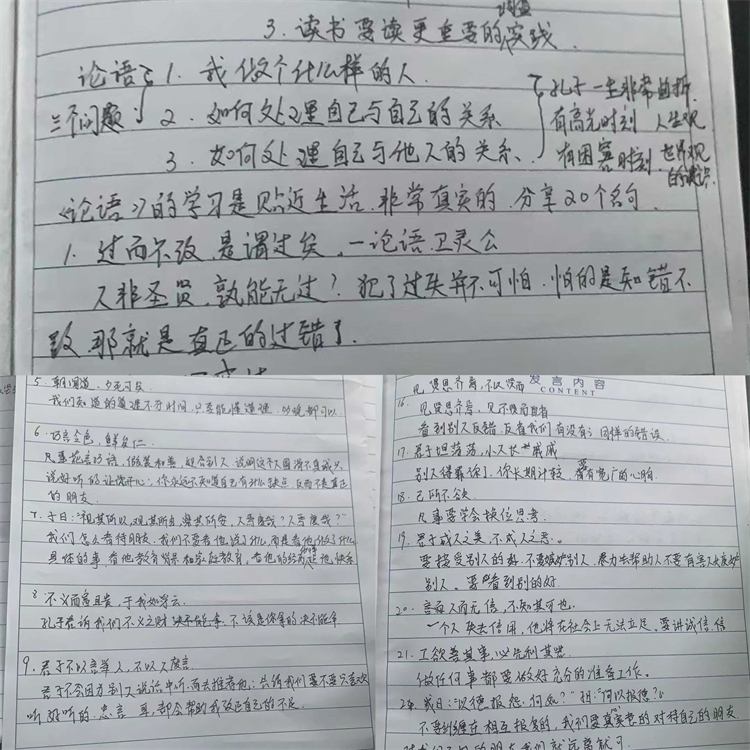 3.读书要读更重要的实践
论语 1.我做个什么样的人.
三个问题 2.如何处理自己与自己的关系
3.如何处理自己与他人的关系.
孔子一生非常曲折
有高光时刻 人生观
有困窘时刻 世界观
《论语》的学习是贴近生活.非常真实的.分享20个名句.
1.过而不改,是谓过矣.—论语.卫灵公
人非圣贤,孰能无过?犯了过失并不可怕.怕的是知错不
改 那就是真正的过错了.
5.朝闻道,夕死可矣
我们知道的道理不分时间,只要能懂道理,
6.巧言令色,鲜矣仁.
说好听的让你开心,你永远不知道自己有什么缺点 反而不是真正
的朋友.
7.子曰:"视其所以,观其所由,察其所安,人焉廋哉?人焉廋哉?"
我们怎么看待朋友,我们不要看他说了什么,而是看他做了什么
8.不义而富且贵,于我如浮云.
孔子告诉我们不义之财决不能拿,不该是你拿的决不能拿
9.君子不以言举人,不以人废言.
君子不会因为别人说话中听,而去推荐他;告诉我们要不要只喜欢
听好听的.忠言 耳,都会帮助我改正自己的不足.
发言内容
CONTENT
16.见贤思齐焉,
见贤思齐焉,见不贤而自省
看到别人反错.反省我们有没有同样的错误.
17.君子坦荡荡,小人长戚戚
别人得罪你了.你长期计较,要有宽广的心胸.
18.己所不欲
凡事要学会换位思考.
19.君子成人之美,不成人之恶.
要接受别人的 不要嫉妒别人.尽力去帮助人不要有害人
别人.要看到别的好.
20.言而无信,不知其可也.
一个人失去信用,他将在社会上无法立足.要讲诚信.信
21.工欲善其事,必先利其器.
做任何事都要做好充分的准备工作.
或曰:"以德报怨,何如?"曰:"何以报德?"
相互报复的,我们要真实的对待自己的朋友